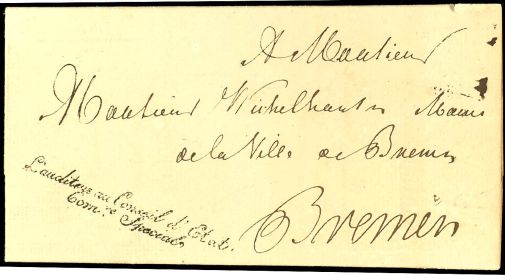 A Monsieur
Monsieur Wichelhausen Maire
de la Ville de Bremen
Bremen
L'auditeur au Conseil d'Etat,
Com.re Special.